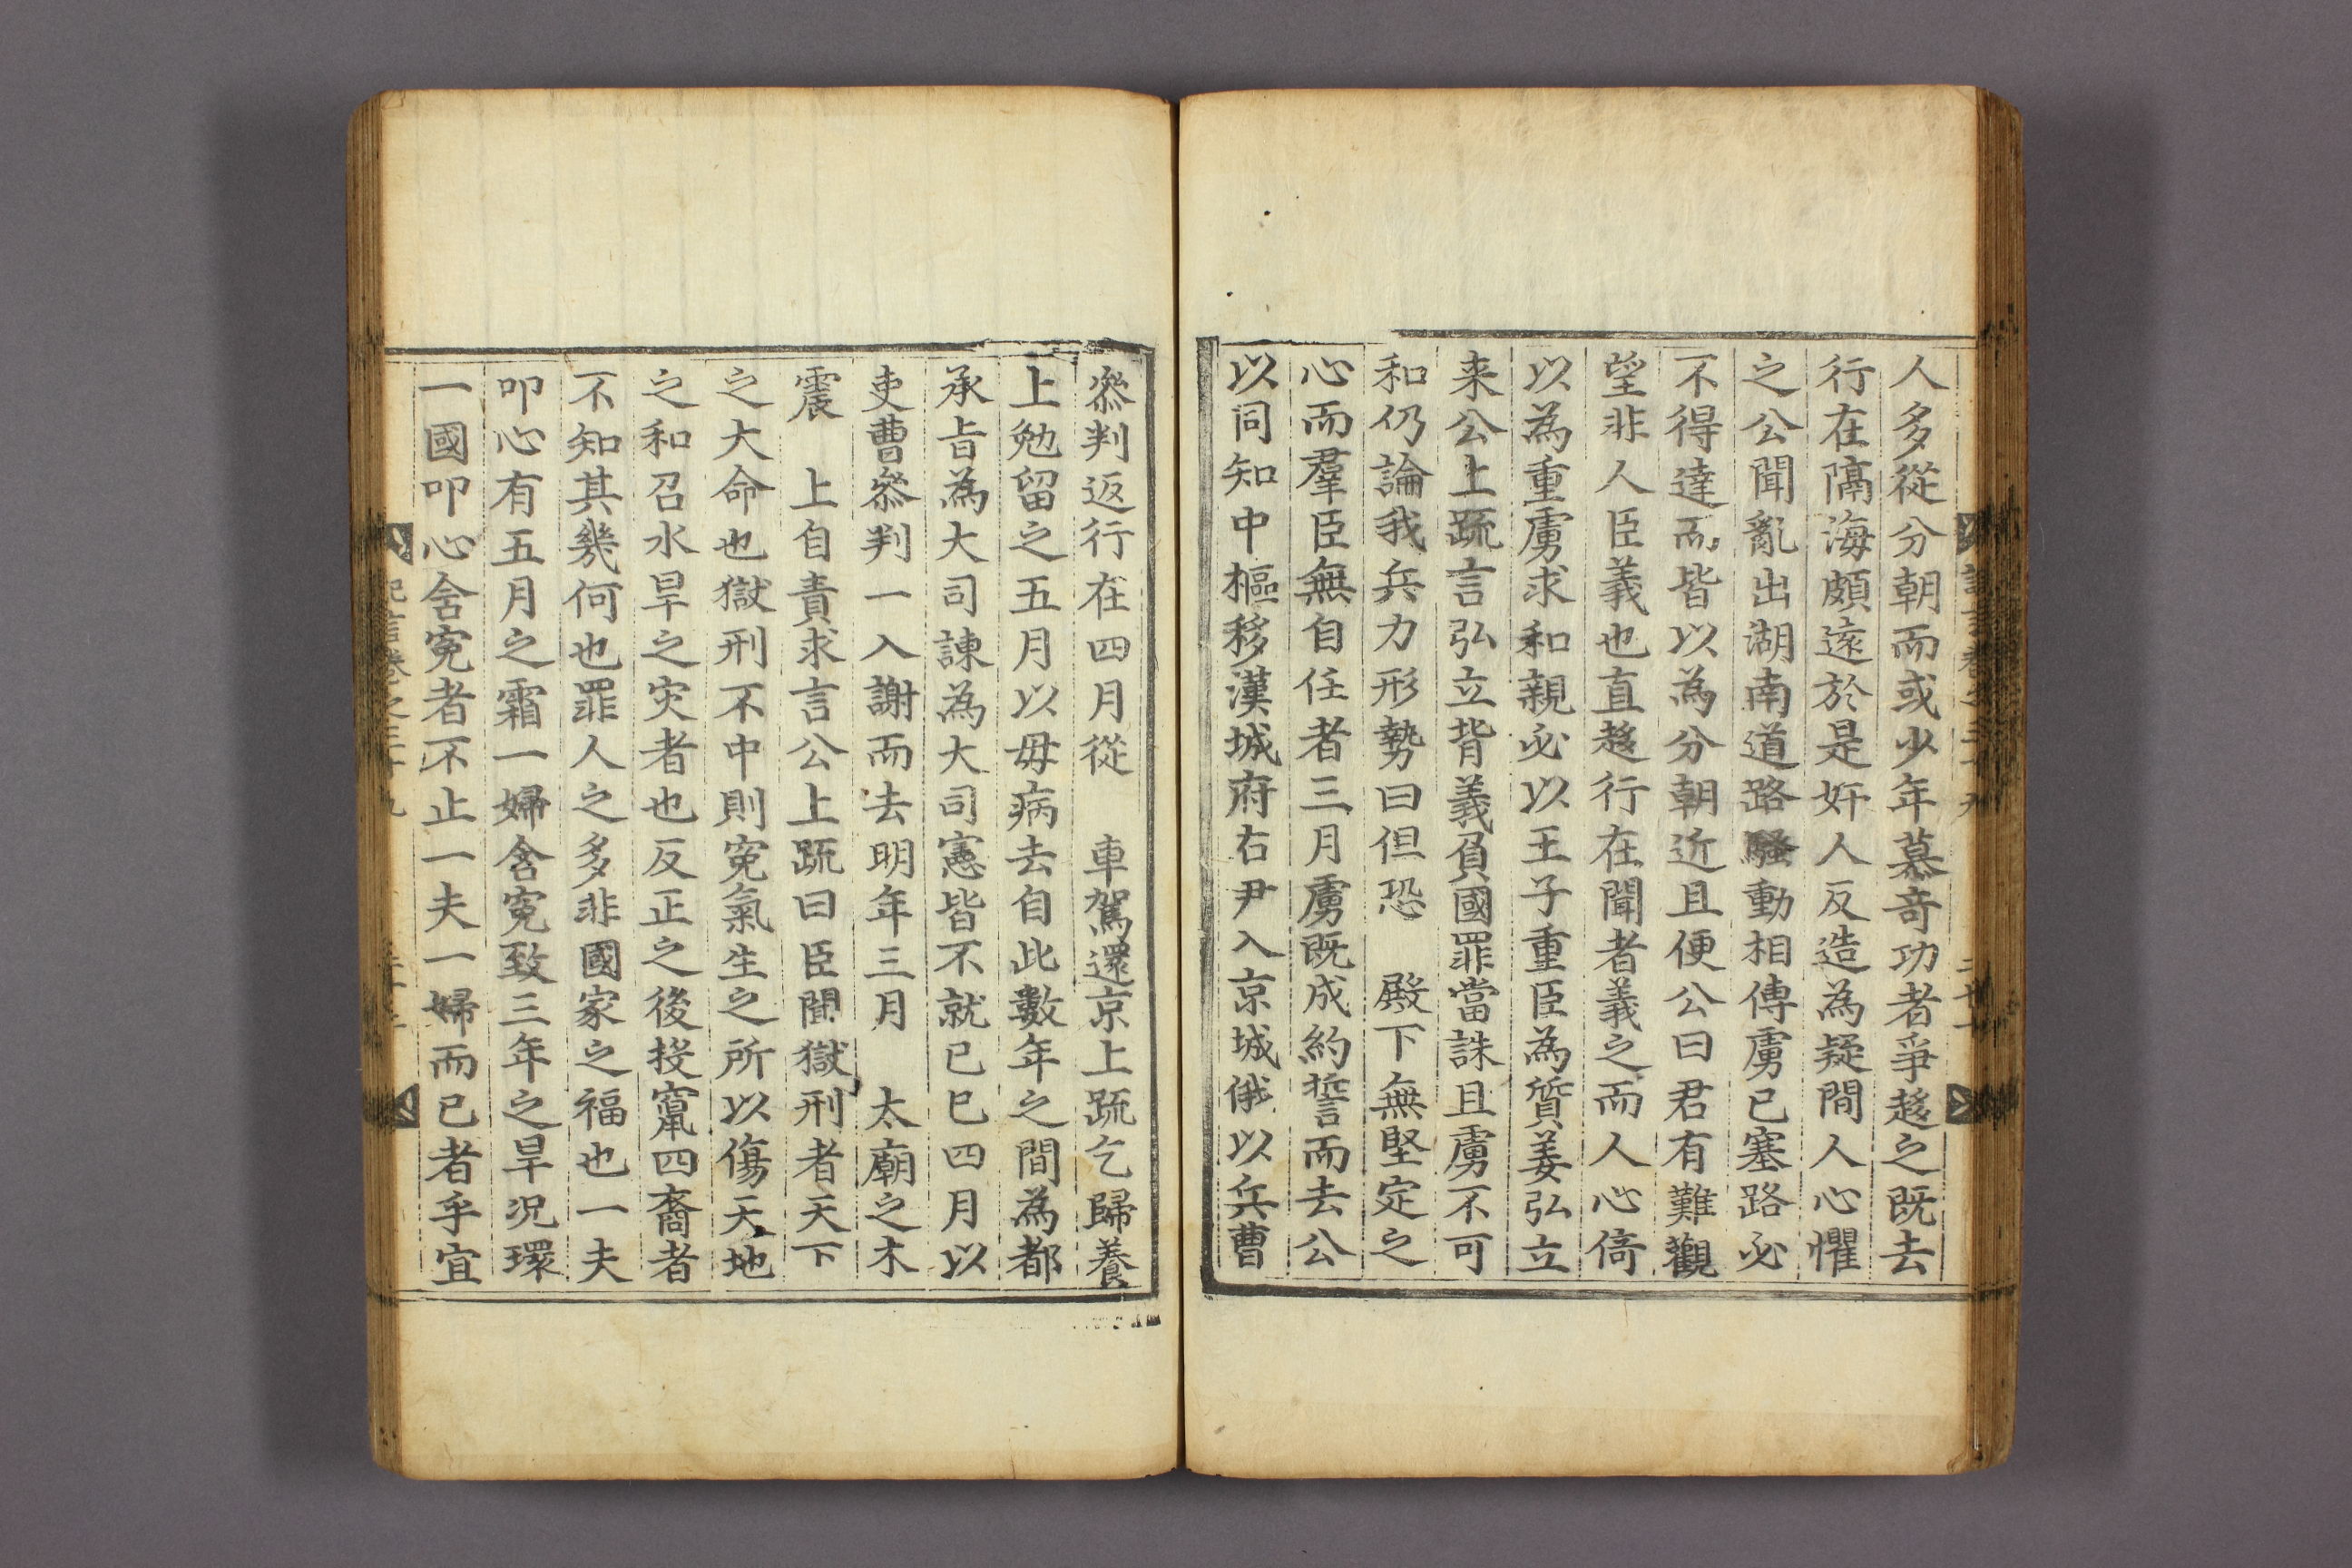 人多從分朝而或少年慕奇功者爭趍之既去
行在隔海頗遠於是奸人反造為疑間人心懼
之公聞亂出湖南道路騷動相傳虜已塞路必
不得達而皆以為分朝近且便公曰君有難觀
望非人臣義也直趍行在聞者義之而人心倚
以為重虜求和親必以王子重臣為質姜弘立
来公上䟽言弘立背義負國罪當誅且虜不可
和仍論我兵力形勢曰但恐　殿下無堅定之
心而羣臣無自任者三月虜既成約誓而去公
以同知中樞移漢城府右尹入京城俄以兵曹
叅判返行在四月從　車駕還京上䟽乞歸養
上勉留之五月以母病去自此數年之間為都
承旨為大司諫為大司憲皆不就己巳四月以
吏曹叅判一入謝而去明年三月　太廟之木
震　上自責求言公上䟽曰臣聞獄刑者天下
之大命也獄刑不中則寃氣生之所以傷天地
之和召水旱之灾者也反正之後投竄四裔者
不知其幾何也罪人之多非國家之福也一夫
叩心有五月之霜一婦含寃致三年之旱况環
一國叩心含寃者不止一夫一婦而已者乎宜
記言卷之三十九